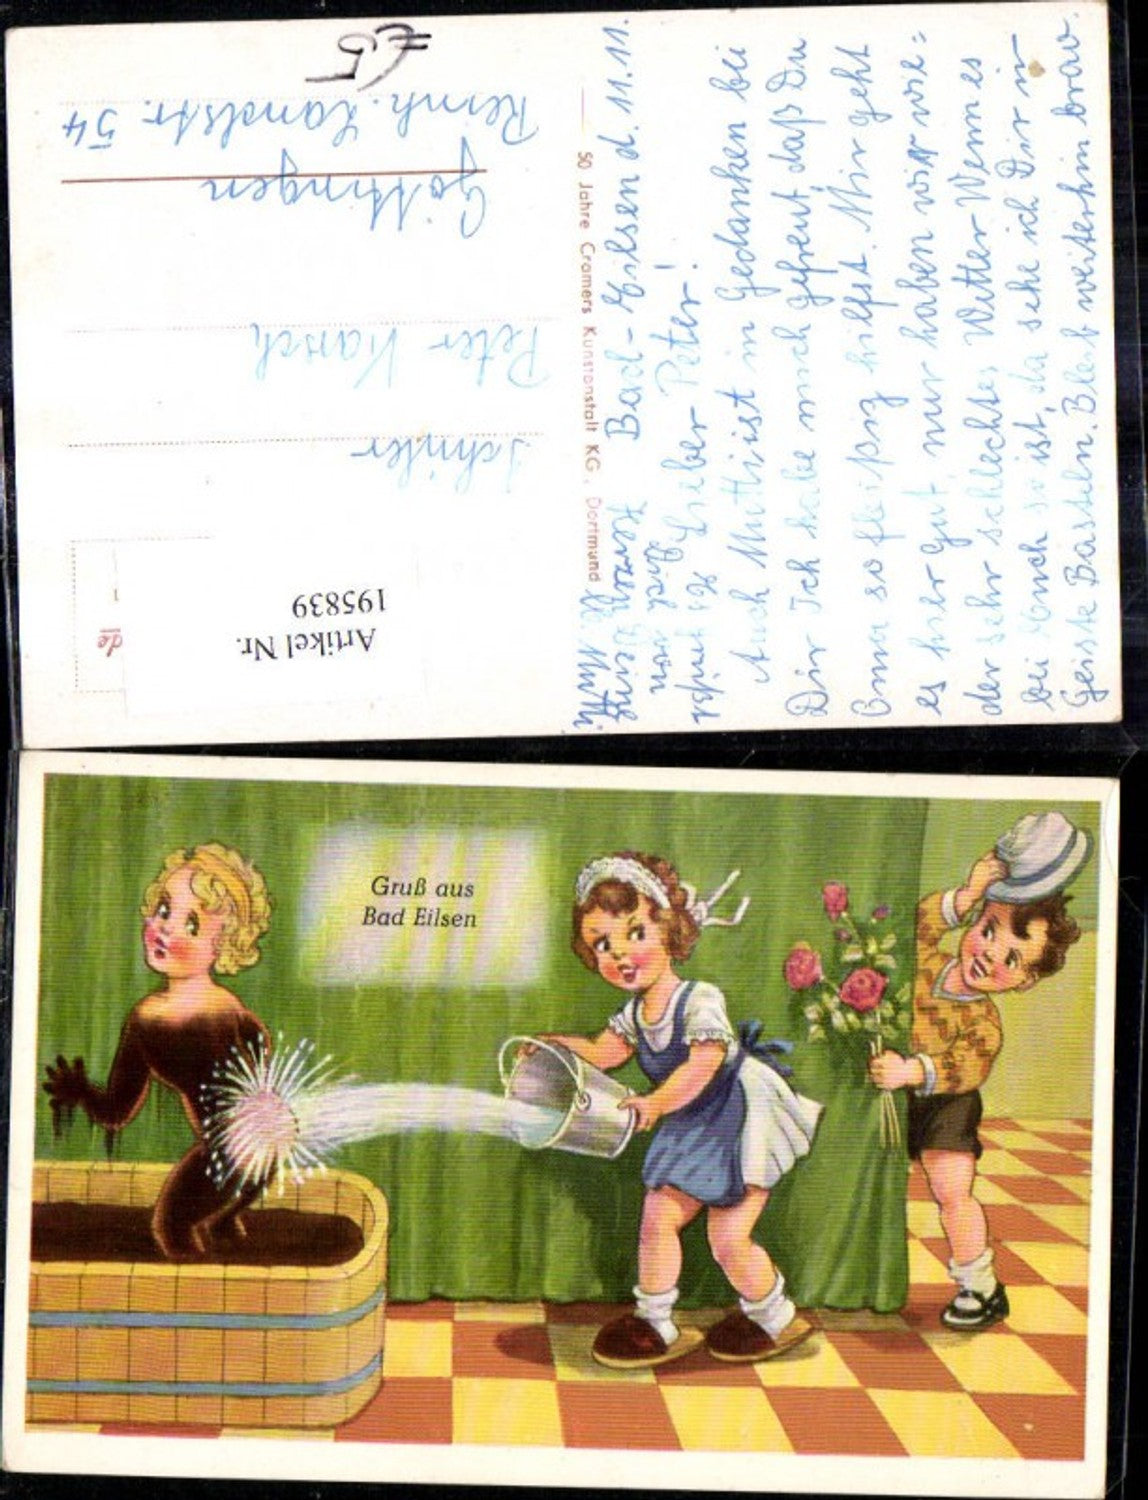 Bad-Eilsen d. 11.11.
Lieber Peter!
Auch Mutti ist in Gedanken bei
Dir. Ich habe mich gefreut, daß Du
Oma so fleißig hilfst. Mir geht
es hier gut, nur haben wir wie=
der sehr schlechtes Wetter. Wenn es
bei Euch so ist, da sehe ich Dir im
Geiste Basteln. Bleib weiterhin brav.
Mutti
50 Jahre Cramers Kunstanstalt KG, Dortmund
Artikel Nr.
195839
Schüler
Peter Karsch
Göttingen
Reinh. Landstr. 54
£5
de
Gruß aus
Bad Eilsen